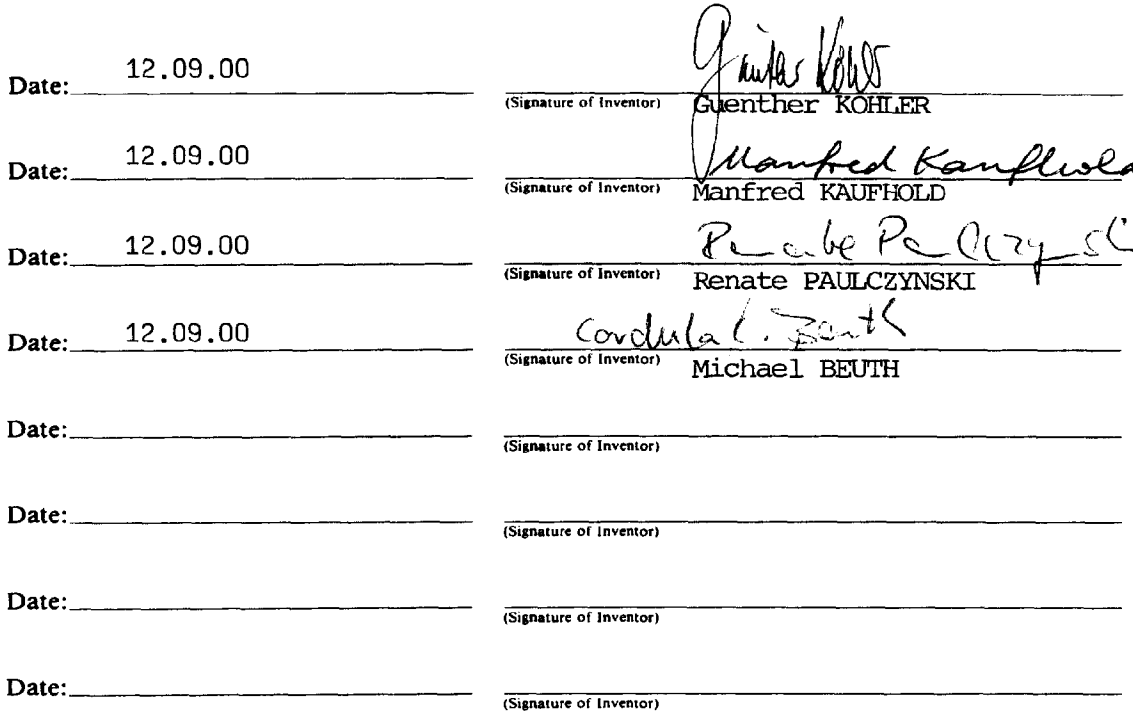 Date: 12.09.00 Günter Kohler
(Signature of Inventor) Guenther KOHLER
Date: 12.09.00 Manfred Kaufhold
(Signature of Inventor) Manfred KAUFHOLD
Date: 12.09.00 Renate Paulczynski
(Signature of Inventor) Renate PAULCZYNSKI
Date: 12.09.00 Cordula Beuth
(Signature of Inventor) Michael BEUTH
Date:
(Signature of Inventor)
Date:
(Signature of Inventor)
Date:
(Signature of Inventor)
Date:
(Signature of Inventor)